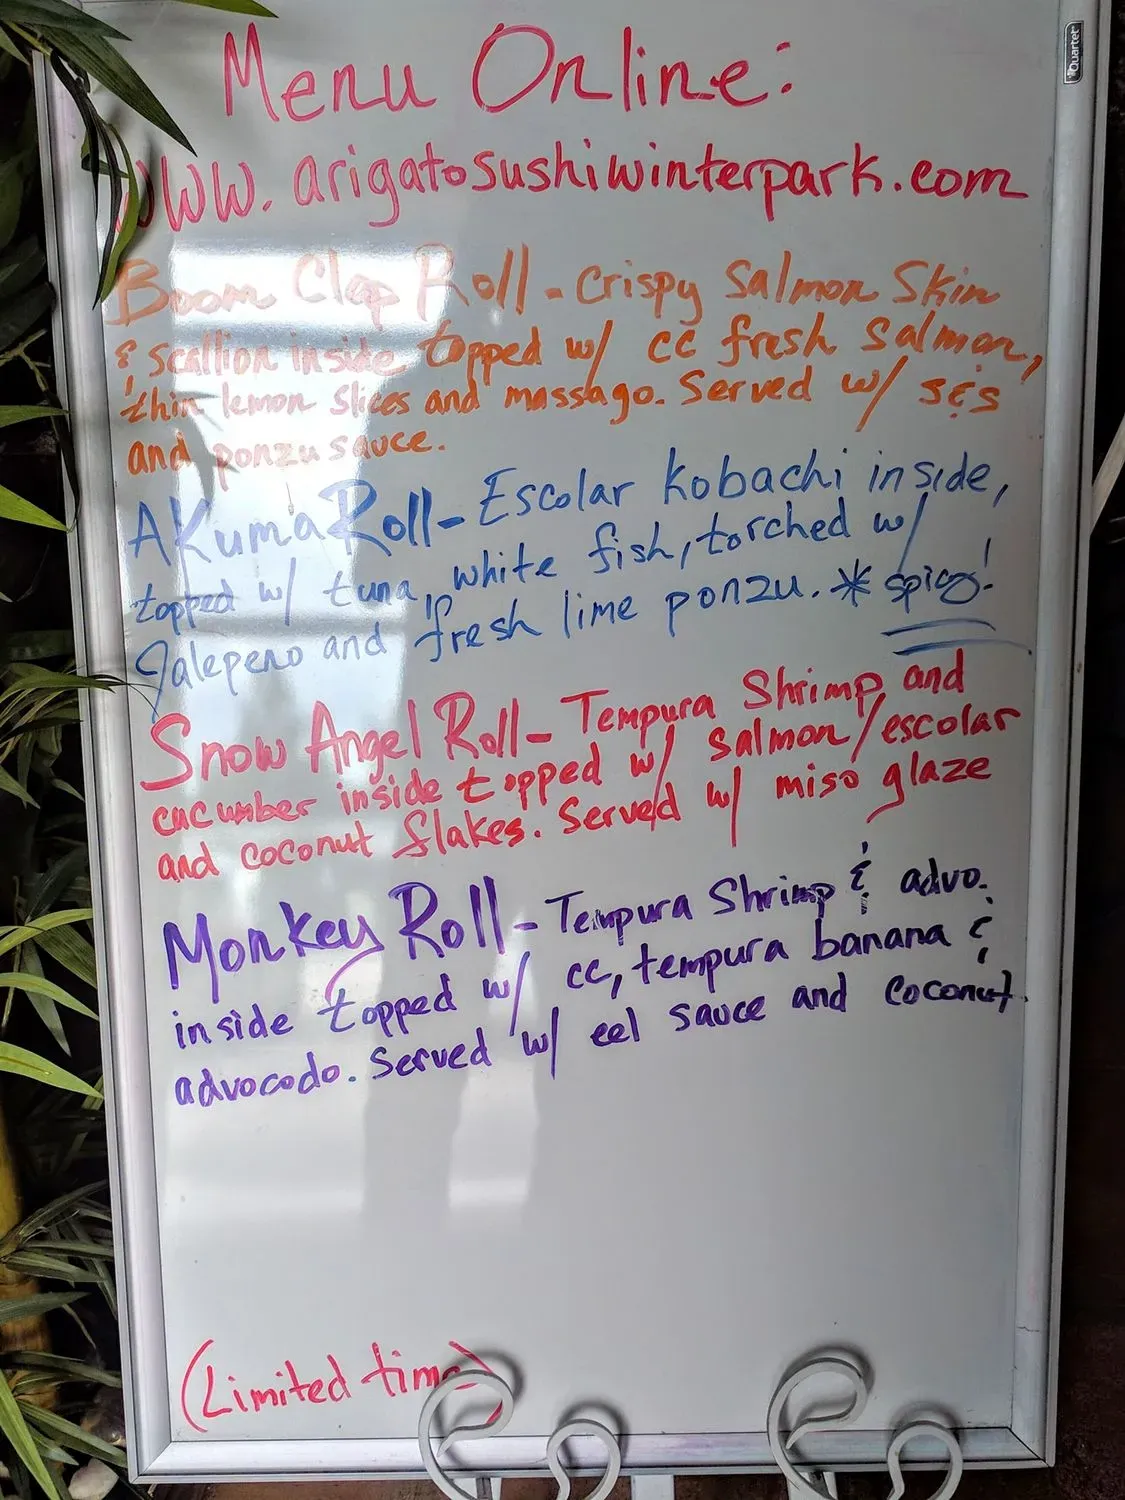 Quartet
Menu Online:
WWW.arigatosushiwinterpark.com
Boom Clap Roll - Crispy Salmon Skin
& scallion inside topped w/ cc fresh salmon,
thin lemon slices and massago. Served w/ s&s
and ponzu sauce.
AKuma Roll - Escolar kobachi inside,
topped w/ tuna, white fish, torched w/
Jalepeno and fresh lime ponzu. * spicy!
Snow Angel Roll - Tempura Shrimp and
cucumber inside topped w/ salmon/escolar
and coconut flakes. Served w/ miso glaze
Monkey Roll - Tempura Shrimp & advo.
inside topped w/ cc, tempura banana &
advocodo. Served w/ eel sauce and coconut
(Limited time)